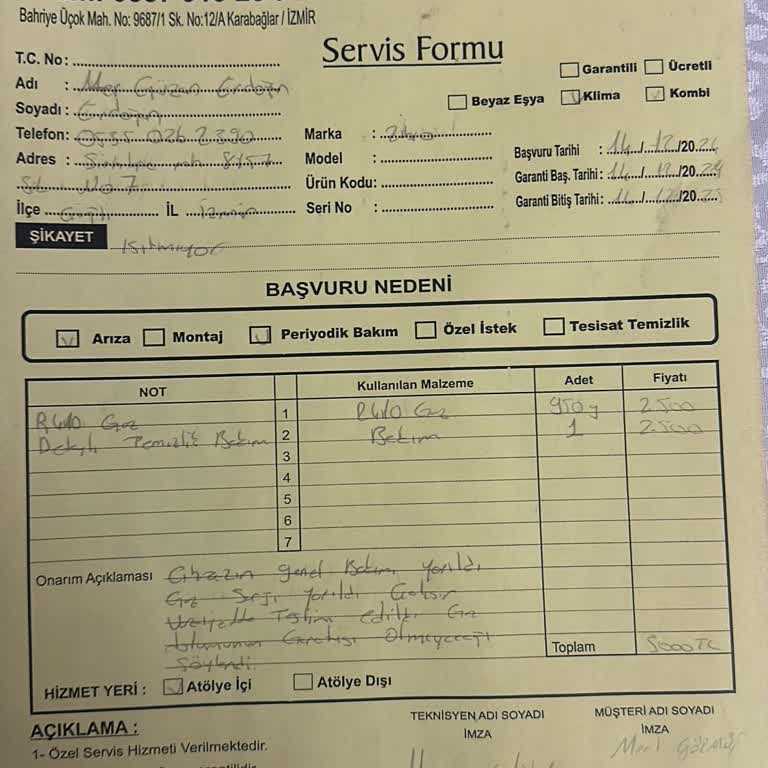 Bahriye Üçok Mah. No: 9687/1 Sk. No:12/A Karabağlar / İZMİR
Servis Formu
T.C. No :
Garantili Ücretli
Adı :
Beyaz Eşya Klima Kombi
Soyadı : Erdoğan
Telefon: 0555 026 2390
Marka :
Başvuru Tarihi : 14/12/2024
Adres : 8157
Model :
Garanti Baş. Tarihi : 14/12/2024
Sk No 7
Ürün Kodu:
Garanti Bitiş Tarihi : 14/12/2025
İlçe İL İzmir
Seri No :
ŞİKAYET Isıtmıyor
BAŞVURU NEDENİ
Arıza Montaj Periyodik Bakım Özel İstek Tesisat Temizlik
NOT Kullanılan Malzeme Adet Fiyatı
R410 Gaz 1 R410 Gaz 950g 2.500
Detaylı Temizlik Bakım 2 Bakım 1 2.500
3
4
5
6
7
Onarım Açıklaması Cihazın genel Bakımı yapıldı
Gaz Şarjı yapıldı Çalışır
Vaziyette Teslim edildi Gaz
Garantisi Olmayacağı
Söylendi.
Toplam 5000 TL
HİZMET YERİ : Atölye İçi Atölye Dışı
AÇIKLAMA :
TEKNİSYEN ADI SOYADI
İMZA
MÜŞTERİ ADI SOYADI
İMZA
1- Özel Servis Hizmeti Verilmektedir.